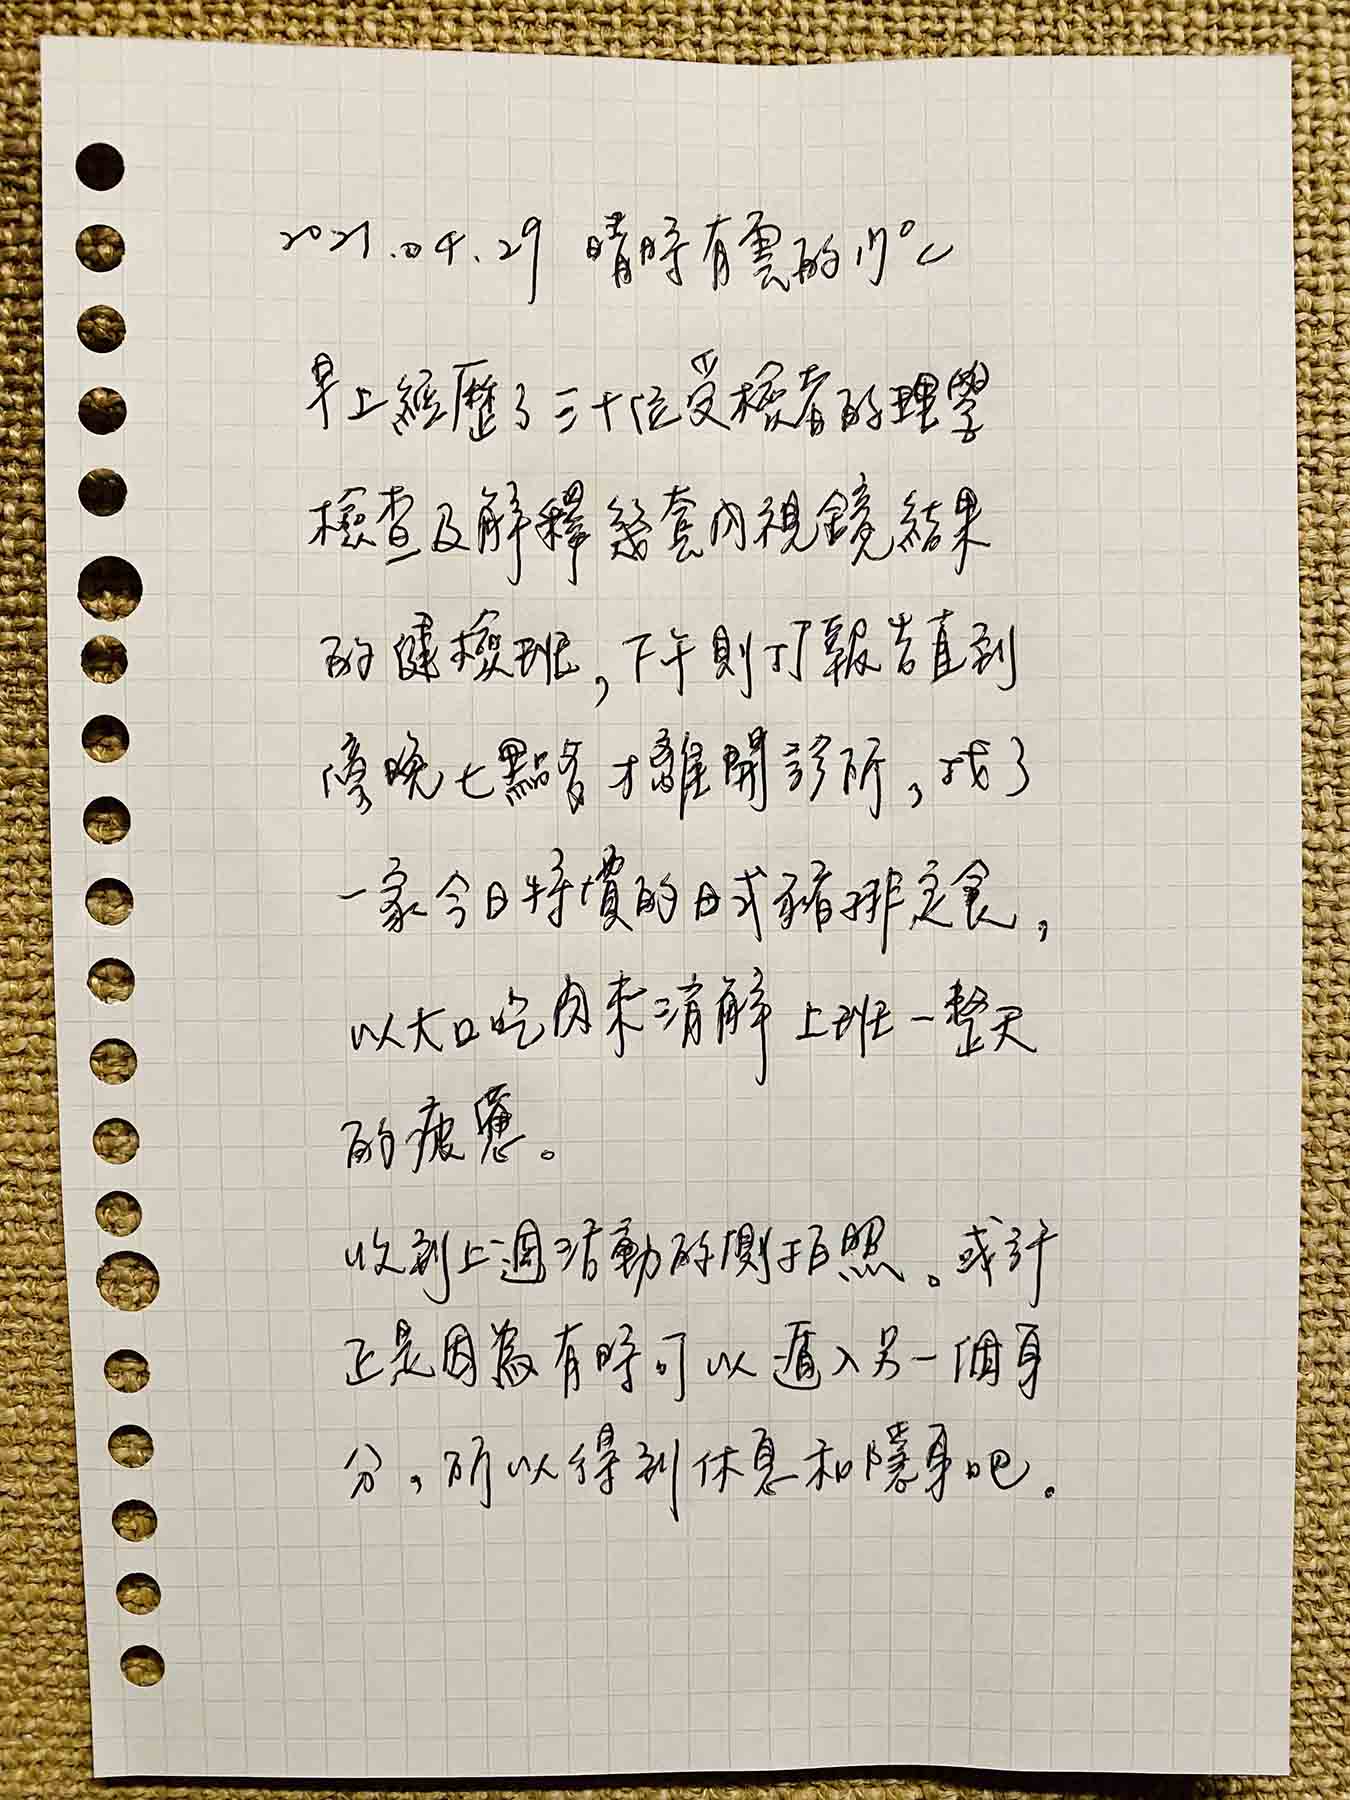 2021.04.29 晴時有雲的17°C
早上經歷了三十位受檢者的理學
檢查及解釋幾套內視鏡結果
的健檢班，下午則打報告直到
傍晚七點多才離開診所，找了
一家今日特價的日式豬排定食，
以大口吃肉來消解上班一整天
的疲憊。
收到上週活動的側拍照。或許
正是因為有時可以遁入另一個身
分，所以得到休息和隱身吧。